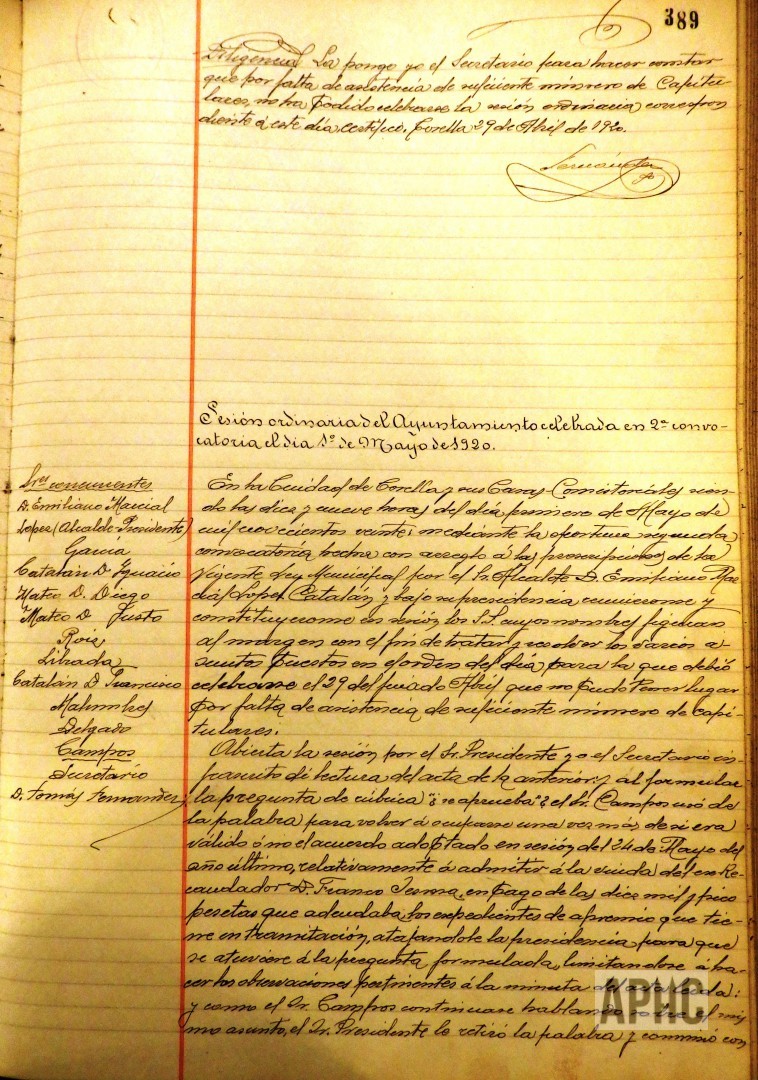 389
Diligencia. La pongo yo el Secretario para hacer constar
que por falta de asistencia de suficiente número de Capitu-
lares, no ha podido celebrarse la sesión ordinaria correspon
diente á este día, certifico. Corella 29 de Abril de 1920.
Fernández
Sesión ordinaria del Ayuntamiento celebrada en 2ª convo-
catoria el día 1º de Mayo de 1920.
Sres concurrentes
D. Emiliano Marcial
Lopez (Alcalde Presidente)
García
Catalán D. Ignacio
Mateo D. Diego
Mateo D. Justo
Rois
Librada
Catalán D. Francisco
Malumbres
Delgado
Campos
Secretario
D. Tomás Fernandez
En la Ciudad de Corella y sus Casas Consistoriales sien-
do las diez y nueve horas del día primero de Mayo de
mil novecientos veinte; mediante la oportuna segunda
convocatoria hecha con arreglo á las prescripciones de la
vigente Ley Municipal por el Sr. Alcalde D. Emiliano Mar
cial Lopez Catalán y bajo su presidencia reunieronse y
constituyeronse en sesión los S.S. cuyos nombres figuran
al margen con el fin de tratar y resolver los varios a-
suntos puestos en el orden del día para la que debió
celebrarse el 29 del finado Abril que no pudo tener lugar
por falta de asistencia de suficiente número de capi-
tulares.
Abierta la sesión por el Sr. Presidente yo el Secretario in-
frascrito dí lectura del acta de la anterior; y al formular
la pregunta de rúbrica "¿se aprueba"? el Sr. Campos usó de
la palabra para volver á ocuparse una vez más de si era
válido ó no el acuerdo adoptado en sesión del 24 de Mayo del
año último, relativamente á admitir á la viuda del ex Re-
caudador D. Franco en pago de las diez mil y pico
pesetas que adeudaba, los expedientes de apremio que tie-
ne en tramitación, atajandole la presidencia para que
se atuviere á la pregunta formulada, limitandose á ha-
cer las observaciones pertinentes á la minuta del acta leida:
y como el Sr. Campos continuase hablando sobre el mis
mo asunto, el Sr. Presidente le retiró la palabra y conminó con
APHC